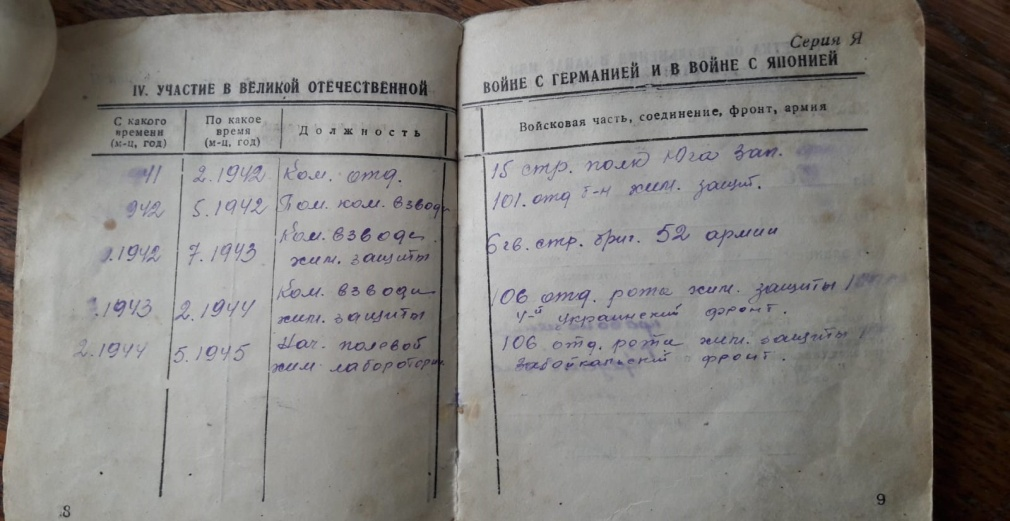 Серия Я
IV. УЧАСТИЕ В ВЕЛИКОЙ ОТЕЧЕСТВЕННОЙ ВОЙНЕ С ГЕРМАНИЕЙ И В ВОЙНЕ С ЯПОНИЕЙ
С какого времени (м-ц, год) По какое время (м-ц, год) Должность Войсковая часть, соединение, фронт, армия
41 2.1942 Ком. отд. 15 стр. полк Юга Зап.
942 5.1942 Пом. ком. взвода 101. отд б-н хим. защит.
.1942 7.1943 Ком. взвода 6 гв. стр. бриг. 52 армии
хим. защиты
.1943 2.1944 Ком. взвода 106 отд. рота хим. защиты
хим. защиты 4-й Украинский фронт.
2.1944 5.1945 Нач. полевой 106 отд. рота хим. защиты
хим. лаборатории Забайкальский фронт.
8
9